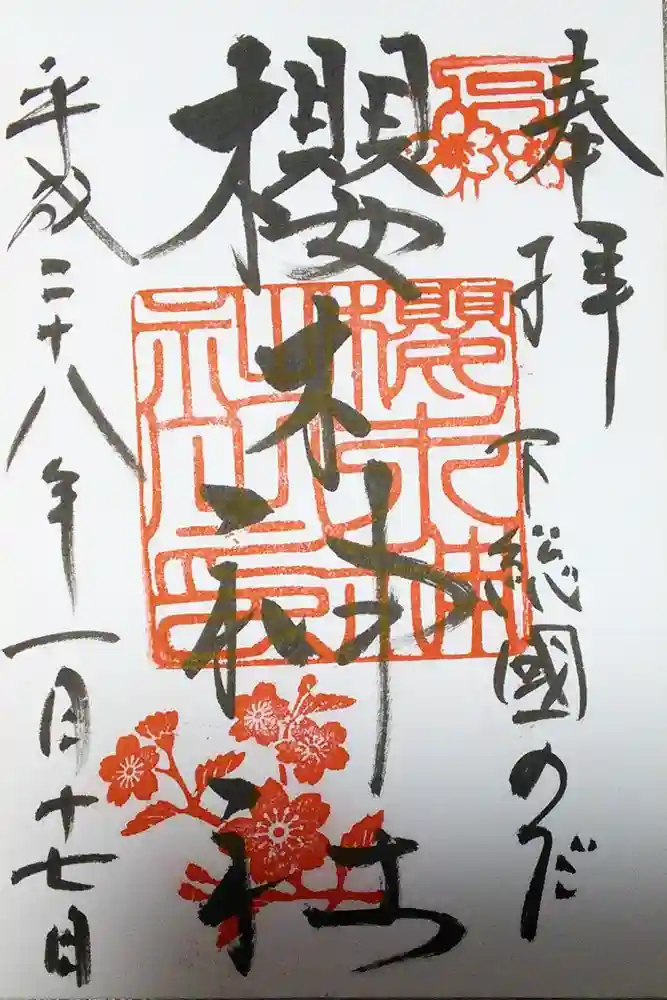 奉拝
下総國のだ
櫻木神社
櫻木神
社之印
平成二十八年一月十七日